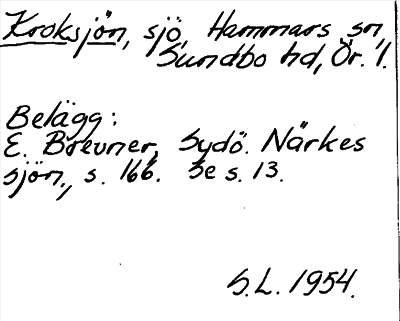 Kroksjön, sjö, Hammars sn,
Sundbo hd, Ör. l.
Belägg:
E. Brevner, Sydö. Närkes
sjön., s. 166. Se s. 13.
S.L. 1954.